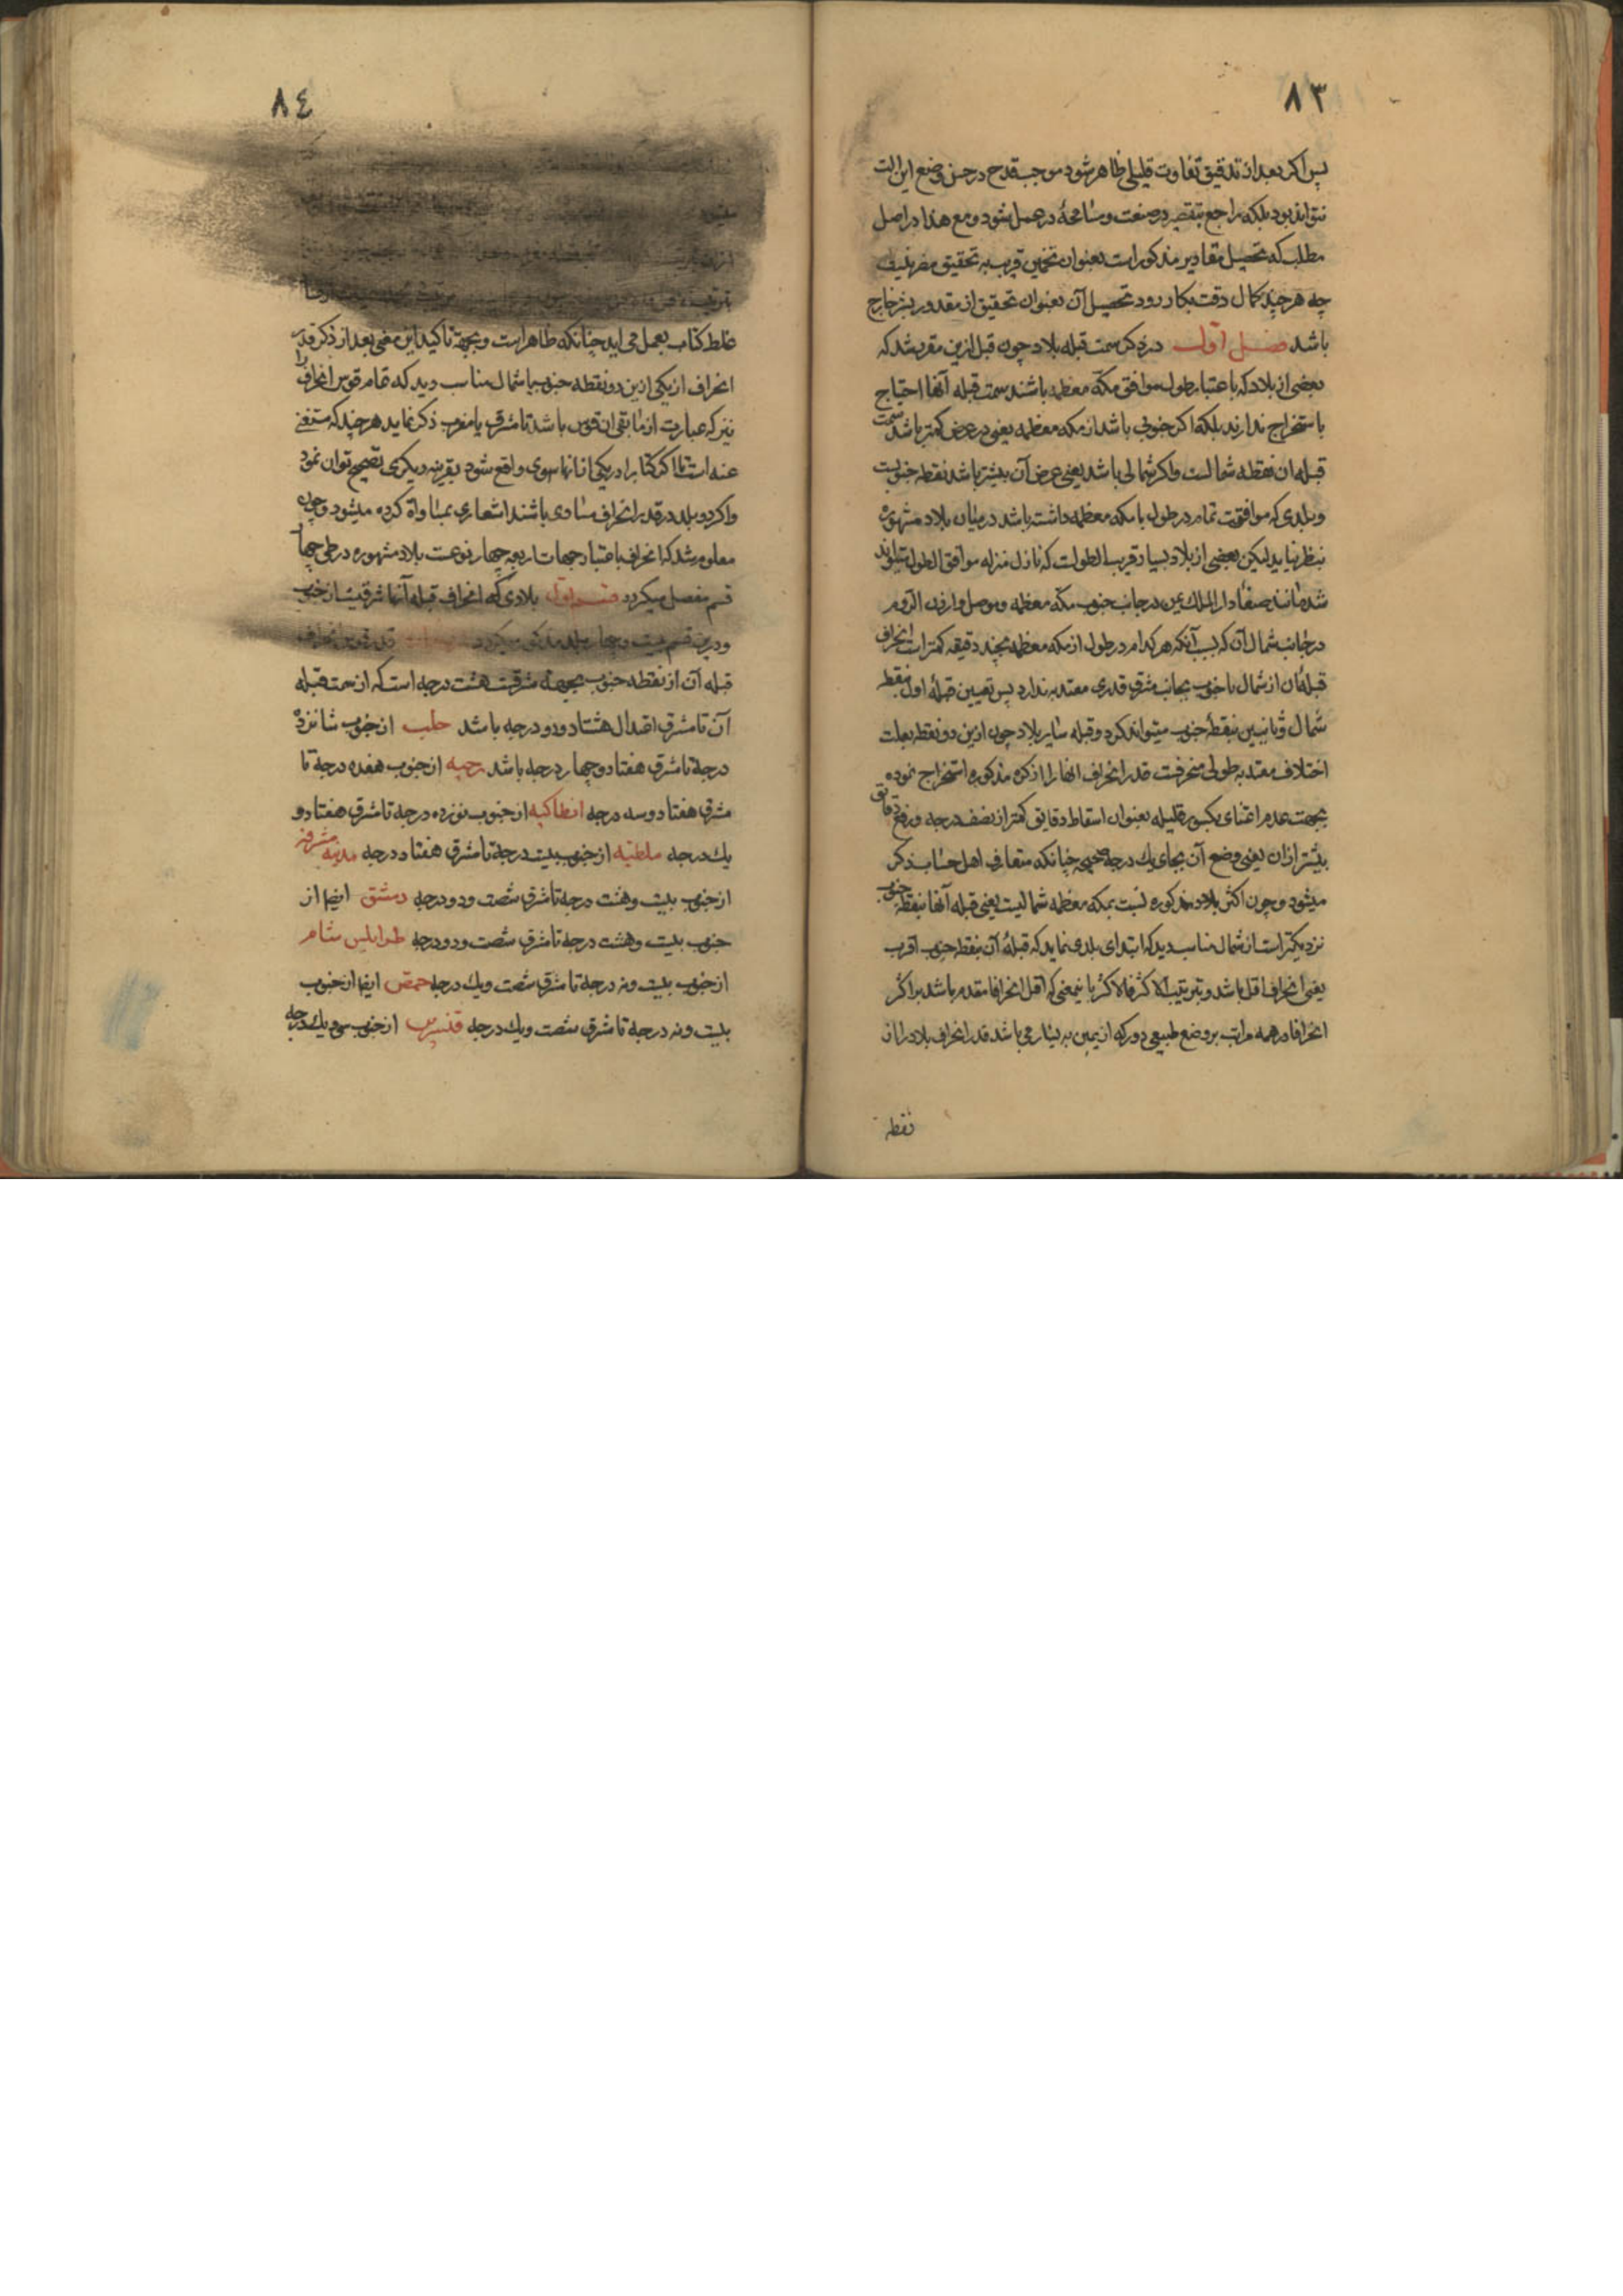 ٨٣
پس اکر بعد از تدقیق تفاوت قلیلی ظاهر شود موجب قدح در حسن وضع این الت
نتواند بود بلکه راجع بتقصیر در صنعت و مسامحهٔ در عمل شود و مع هذا در اصل
مطلب که تحصیل مقادیر مذکور است بعنوان تخمین قریب بر تحقیق مضر نیست
چه هر چند کمال دقت بکار رود تحصیل آن بعنوان تحقیق از مقدور بشر خارج
باشد فصل اول در ذکر سمت قبله بلاد چون قبل ازین مقرر شد که
بعضی از بلاد که باعتبار طول موافق مکّه معظمه باشند سمت قبله آنها احتیاج
باستخراج ندارند بلکه اکر جنوبی باشد از مکه معظمه یعنی در عرض کمتر باشد سمت
قبله ان نقطه شمالست و اکر شمالی باشد یعنی عرض آن بیشتر باشد نقطه جنوبست
و بلدی که موافقت تمام در طول با مکه معظمه داشته باشد در میان بلاد مشهوره
بنظر نیاید لیکن بعضی از بلاد بسیار قریب الطولست که نازل منزله موافق الطول تواند
شد مانند صنعا دار الملک یمن در جانب جنوب مکّه معظمه و موصل و ارزن الروم
در جانب شمال آن که بسبب آنکه هر کدام در طول از مکه معظمه بچند دقیقه کمتر است انحراف
قبلهٔ ان از شمال یا جنوب بجانب مشرق قدری معتد به ندارد پس تعیین قبلهٔ اول بنقطه
شمال و ثانیین بنقطهٔ جنوب میتواند کرد و قبله سایر بلاد چون ازین دو نقطه بعلت
اختلاف معتد به طولی منحرفست قدر انحراف انها را از کره مذکوره استخراج نموده
بجهت عدم اعتنای بکسور قلیله بعنوان اسقاط دقایق کمتر از نصف درجه و رفع دقایق
بیشتر ازان یعنی وضع آن بجای یک درجه صحیحه چنانکه متعارف اهل حسابست ذکر
میشود و چون اکثر بلاد مذکوره نسبت بمکه معظمه شمالیست یعنی قبله آنها بنقطه جنوب
نزدیکتر است از شمال مناسب دید که ابتدای بلدی نماید که قبلهٔ آن بنقطه جنوب اقرب
یعنی انحراف اقل باشد و بترتیب الاکثر فالاکثر باینمعنی که اقل انحرافا مقدم باشد بر اکثر
انحرافا در همه مراتب بر وضع طبیعی دور که از یمین به یسار می باشد قدر انحراف بلاد را از
نقطه
٨٤
غلط کتاب بعمل می اید چنانکه ظاهر است و بجهة تاکید این معنی بعد از ذکر قدر
انحراف از یکی ازین دو نقطه جنوب یا شمال مناسب دید که تمام قوس انحراف را
نیز که عبارت از مابقی ان قوس باشد تا مشرق یا مغرب ذکر نماید هر چند که مستغنی
عنه است تا اکر کتاب را در یکی ازانها سهوی واقع شود بقرینه دیکری تصحیح توان نمود
و اکر دو بلد در قدر انحراف مساوی باشند اشعاری بمساواة کرده میشود و چون
معلوم شد که انحراف باعتبار جهات اربعه چهار نوعست بلاد مشهوره در طی چهار
قسم مفصل میکردد قسم اول بلادی که انحراف قبله آنها شرقیست از جنوب
و درین قسم بیست و چهار بلد مذکور میکردد قدر قوس انحراف
قبله آن از نقطه جنوب بجهة مشرقست هشت درجه است که از سمت قبله
آن تا مشرق اعتدال هشتاد و دو درجه باشد حلب از جنوب شانزده
درجه تا مشرق هفتاد و چهار درجه باشد رحبه از جنوب هفده درجه تا
مشرق هفتاد و سه درجه انطاکیه از جنوب نوزده درجه تا مشرق هفتاد و
یک درجه ملطیه از جنوب بیست درجه تا مشرق هفتاد درجه مدینه مشرفه
از جنوب بیست و هشت درجه تا مشرق شصت و دو درجه دمشق ایضا از
جنوب بیست و هشت درجه تا مشرق شصت و دو درجه طرابلس شام
از جنوب بیست و نه درجه تا مشرق شصت و یک درجه حمص ایضا از جنوب
بیست و نه درجه تا مشرق شصت و یک درجه قنسرین از جنوب سی و یک درجه